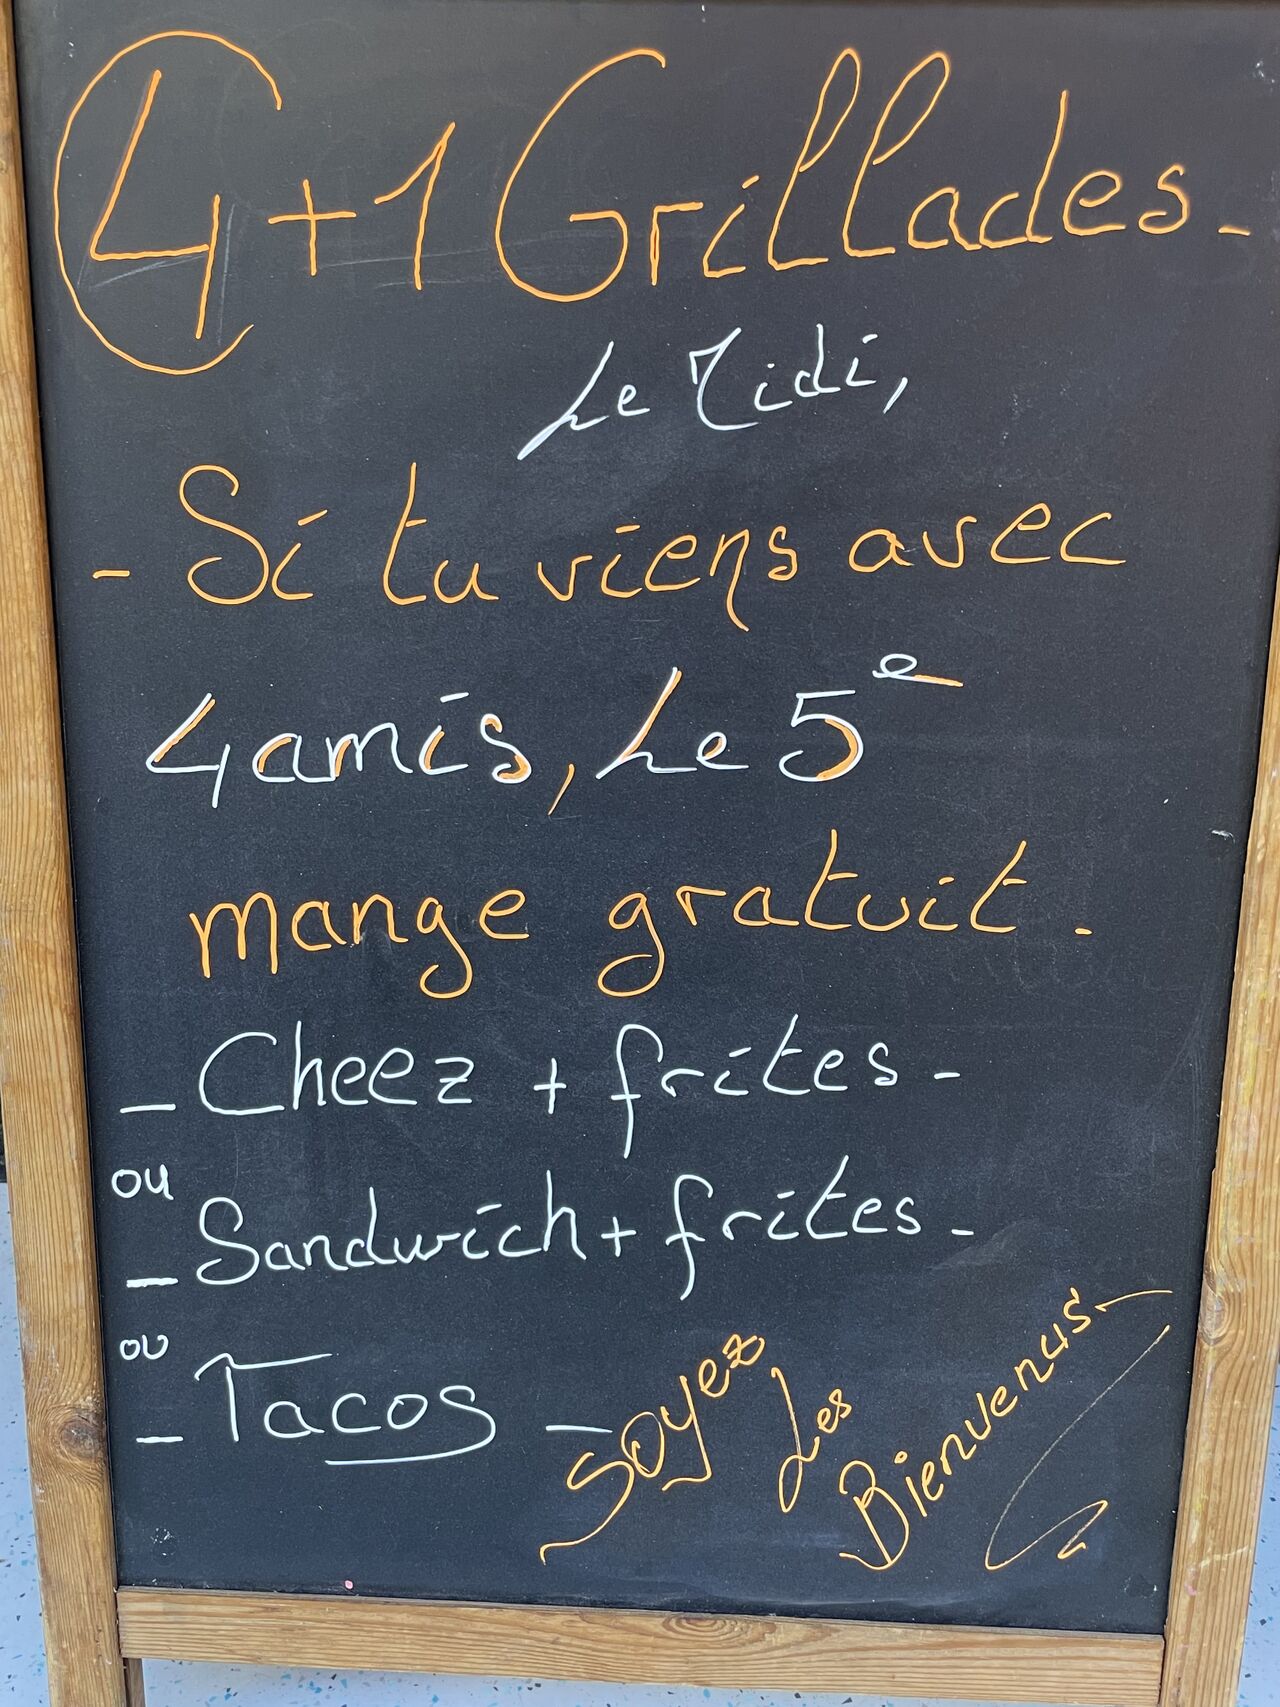 4+1 Grillades-
Le Midi,
- Si tu viens avec
4 amis, Le 5e
mange gratuit.
- Cheez + frites-
ou
- Sandwich + frites-
ou
- Tacos -
Soyez
Les
Bienvenus-